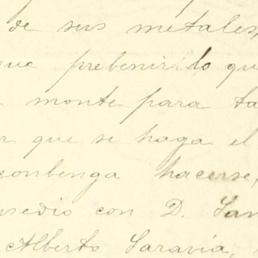 de sus metales,
que prebenirlo qu
monte para ta
r que se haga el
conbenga hacerse,
sedio con D. San
Alberto Saravia,